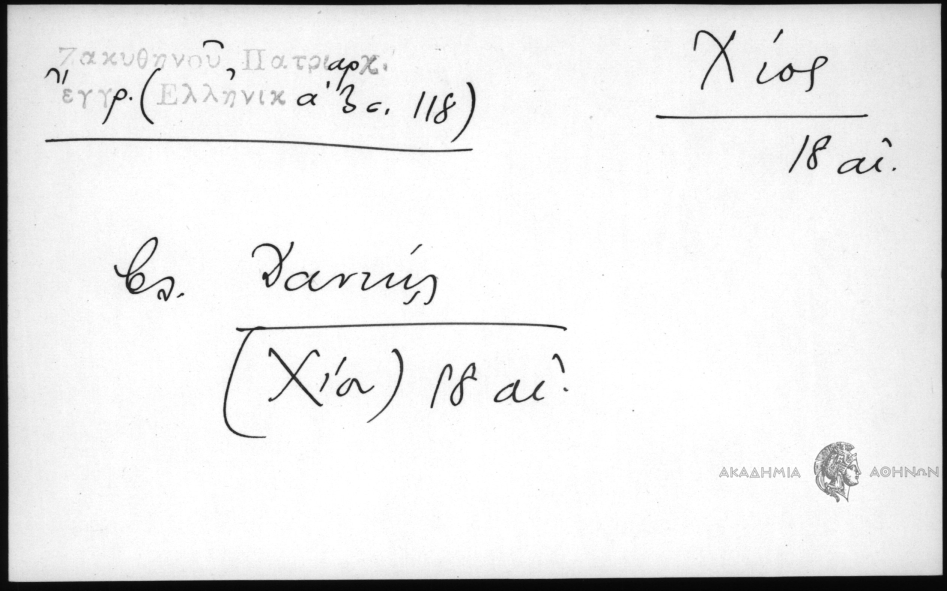 Ζακυθηνοῦ, Πατριαρχ.
ἔγγρ. (Ἑλληνικὰ 3 σ. 118)
Χίος
18 αἰ.
βλ. Δαντής
(Χίου) 18 αἰ.
ΑΚΑΔΗΜΙΑ ΑΘΗΝΩΝ